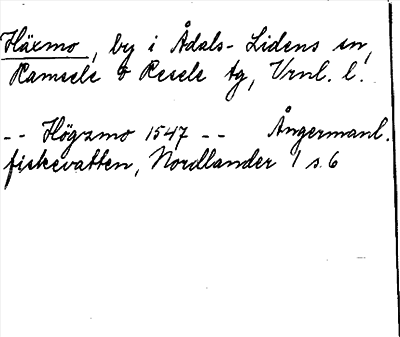 Häxmo, by i Ådals-Lidens sn,
Ramsele & Resele tg, Vrnl. l.
-- Högzmo 1547 -- Ångermanl.
fiskevatten, Nordlander 1 s. 6